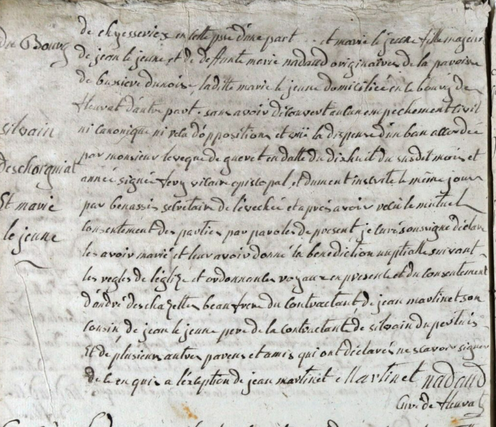 du Bourg
silvain
deschorgniat
Et marie
le jeune
de chyesseries en cette psse d'une part et marie le jeune fille majeure
de jean le jeune et de deffunte marie nadaud originaires de la paroisse
de Bussiere dunoise laditte marie le jeune domiciliée en ce bourg de
fleurat d'autre part, sans avoir découvert aucun empêchement civil
ni canonique ni reçu d'opposition et vû la dispense d'un ban accordée
par monsieur l'eveque de gueret en datte du dixhuit du susdit mois et
année signé vicaire episcopal et dument insinuée le même jour
par Benassis secretaire de l'evêché et après avoir reçu le mutuel
consentement des parties par paroles de present je curé soussigné déclare
les avoir marié et leur avoir donné la benediction nuptiale suivant
les regles de l'église et ordonnances royaux en presence et du consentement
d'andré deschazettes beaufrere du contractant de jean martinet son
cousin, de jean le jeune pere de la contractante de silvain
Et de plusieurs autres parens et amis qui ont déclarés ne scavoir signer
de ce enquis a l'exeption de jean martinet Martinet nadaud
Curé de fleurat